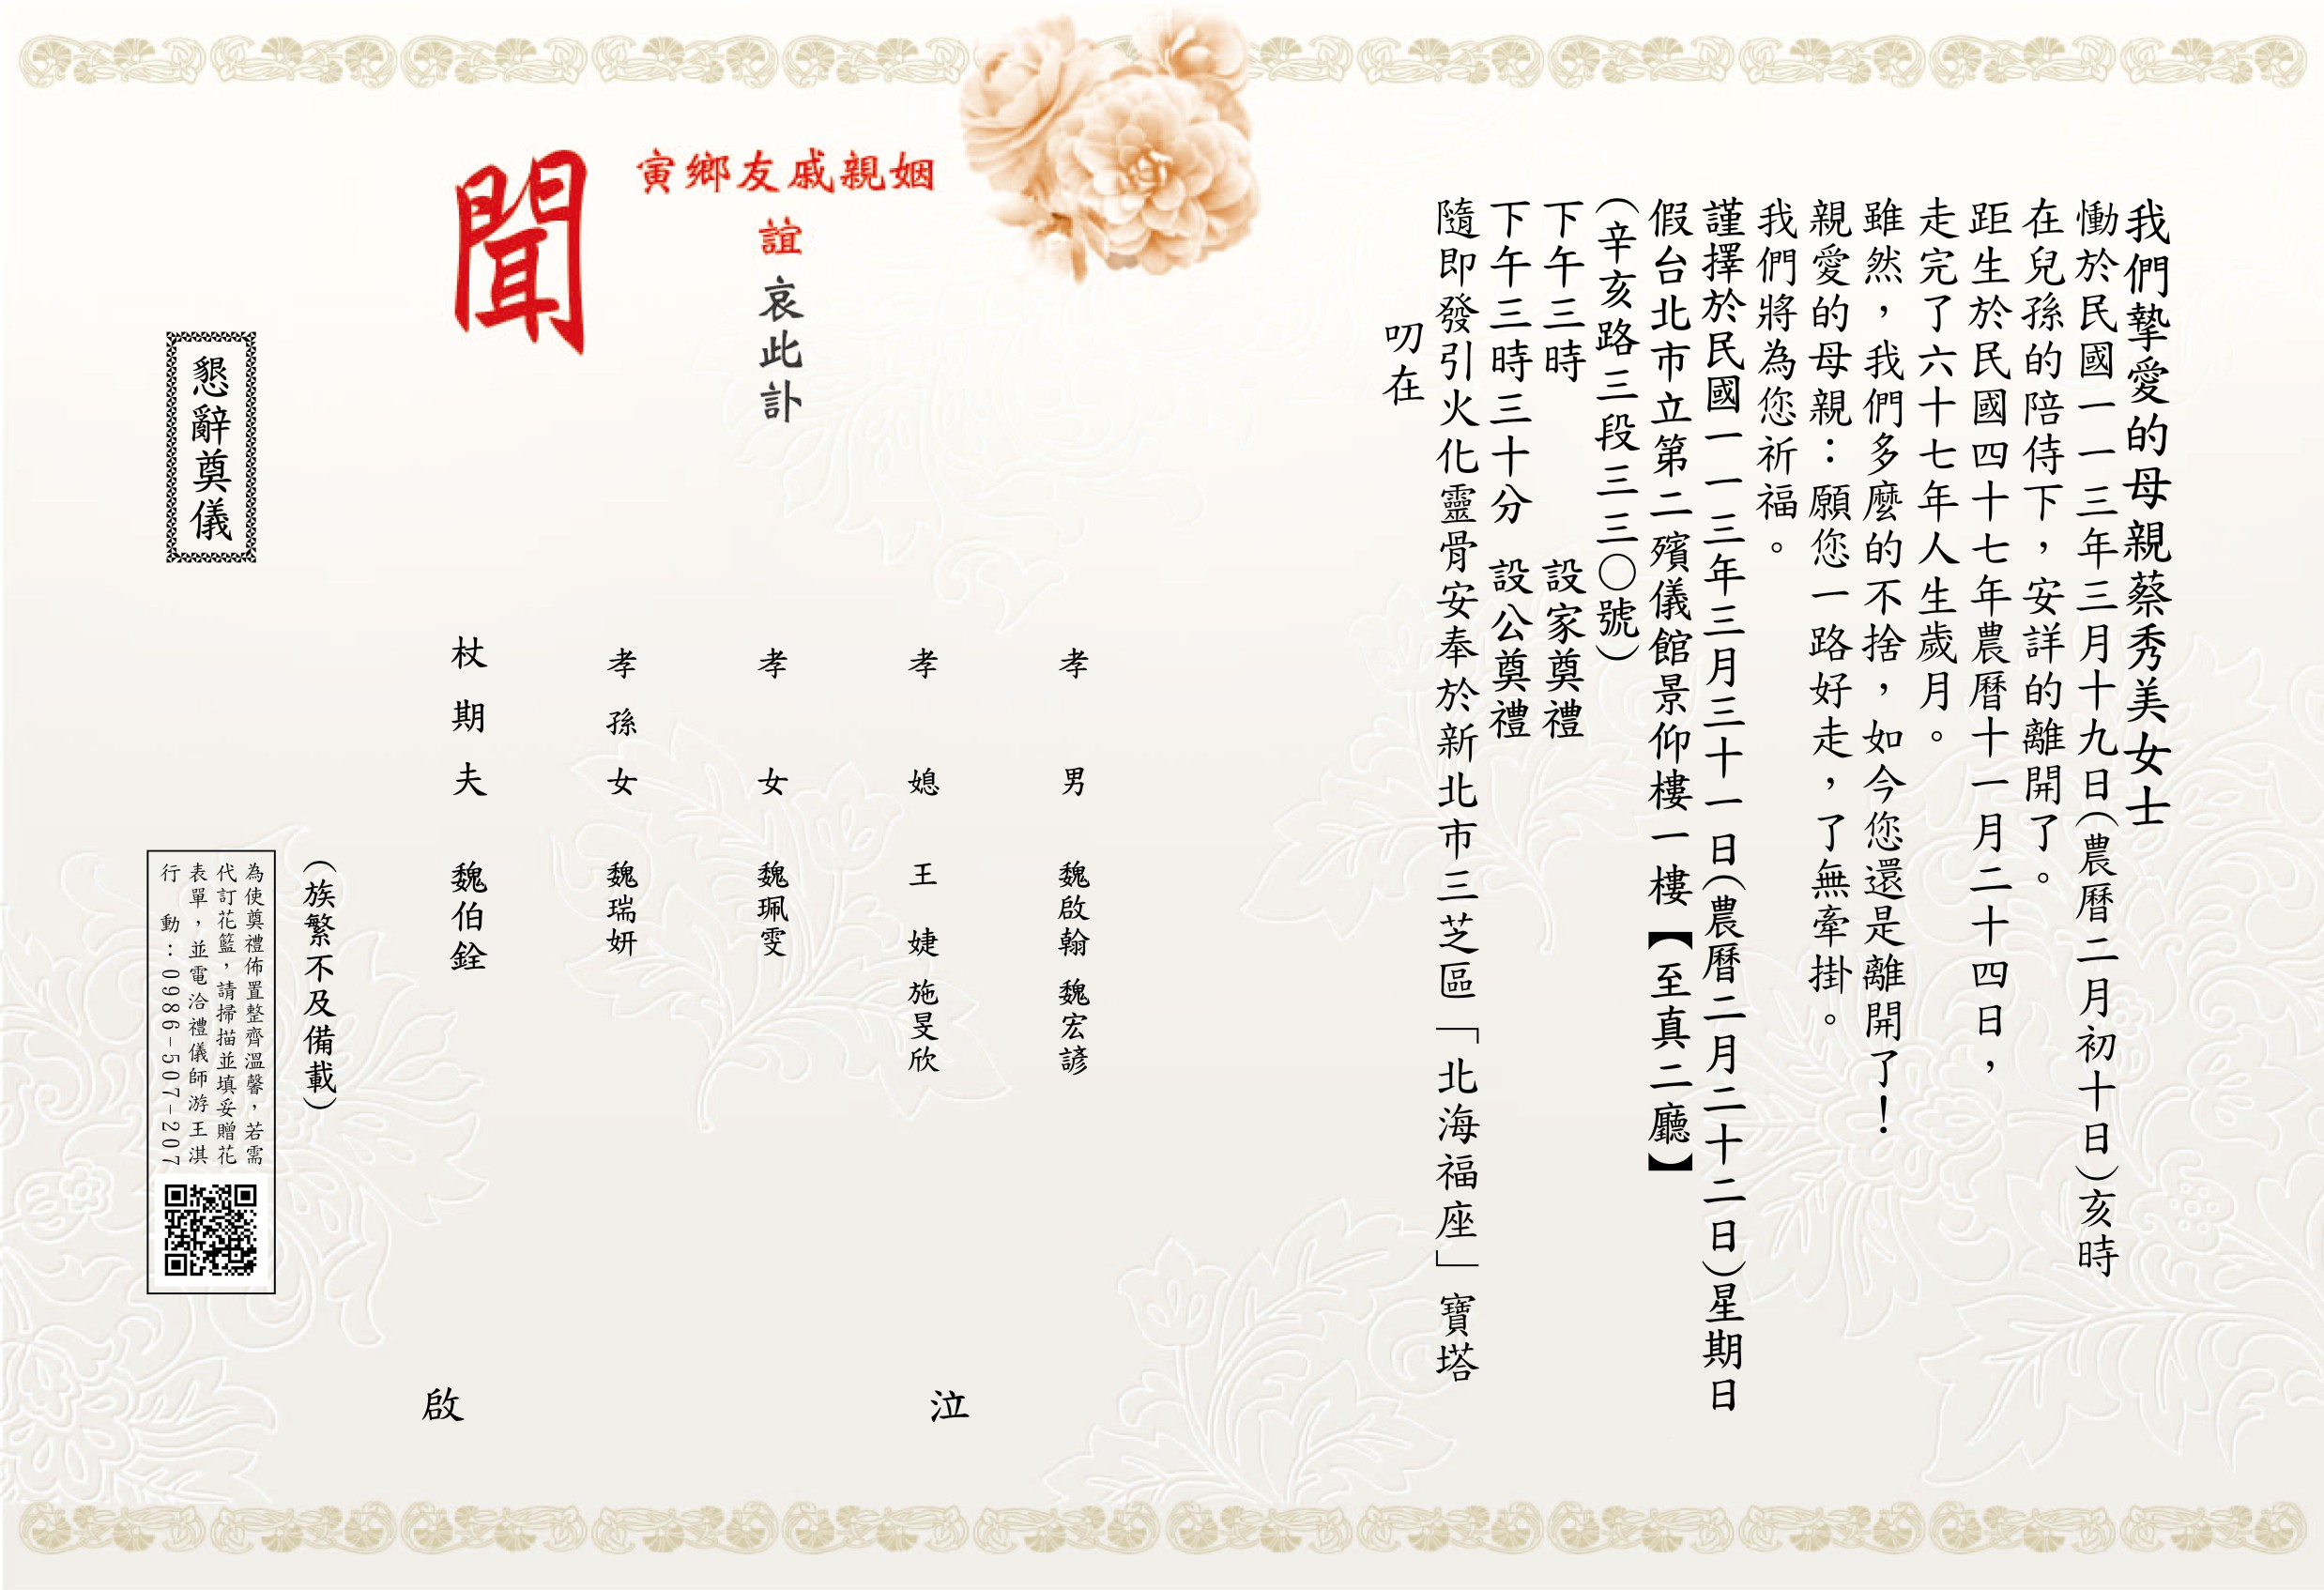 我們摯愛的母親蔡秀美女士
慟於民國一一三年三月十九日(農曆二月初十日)亥時
在兒孫的陪侍下，安詳的離開了。
距生於民國四十七年農曆十一月二十四日，
走完了六十七年人生歲月。
雖然，我們多麼的不捨，如今您還是離開了！
親愛的母親：願您一路好走，了無牽掛。
我們將為您祈福。
謹擇於民國一一三年三月三十一日(農曆二月二十二日)星期日
假台北市立第二殯儀館景仰樓一樓【至真二廳】
(辛亥路三段三三〇號)
下午三時 設家奠禮
下午三時三十分 設公奠禮
隨即發引火化靈骨安奉於新北市三芝區「北海福座」寶塔
叨在
姻親戚友鄉寅
誼
哀此訃
聞
孝男 魏啟翰 魏宏諺
孝媳 王婕 施旻欣
孝女 魏珮雯
孝孫女 魏瑞妍
杖期夫 魏伯銓
泣
啟
(族繁不及備載)
懇辭奠儀
為使奠禮佈置整齊溫馨，若需
代訂花籃，請掃描並填妥贈花
表單，並電洽禮儀師游王淇
行動：0986-507-207